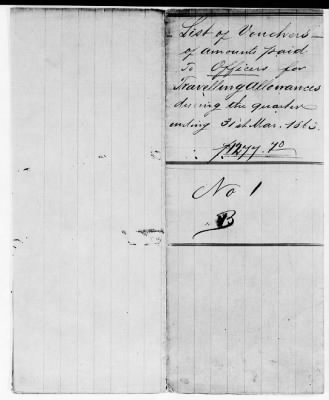 List of Vouchers
of amounts paid
To Officers for
Travelling Allowances
during the quarter
ending 31st Mar. 1863.
$1277.70
No 1
B